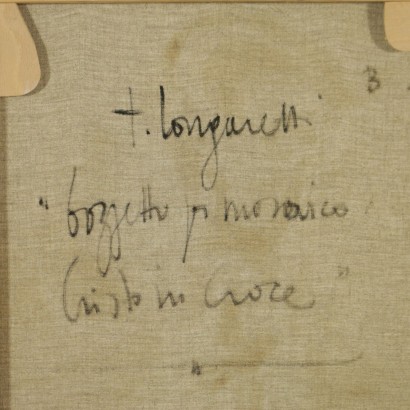 3
t. Longaretti
"bozzetto p mosaico
Cristo in Croce"